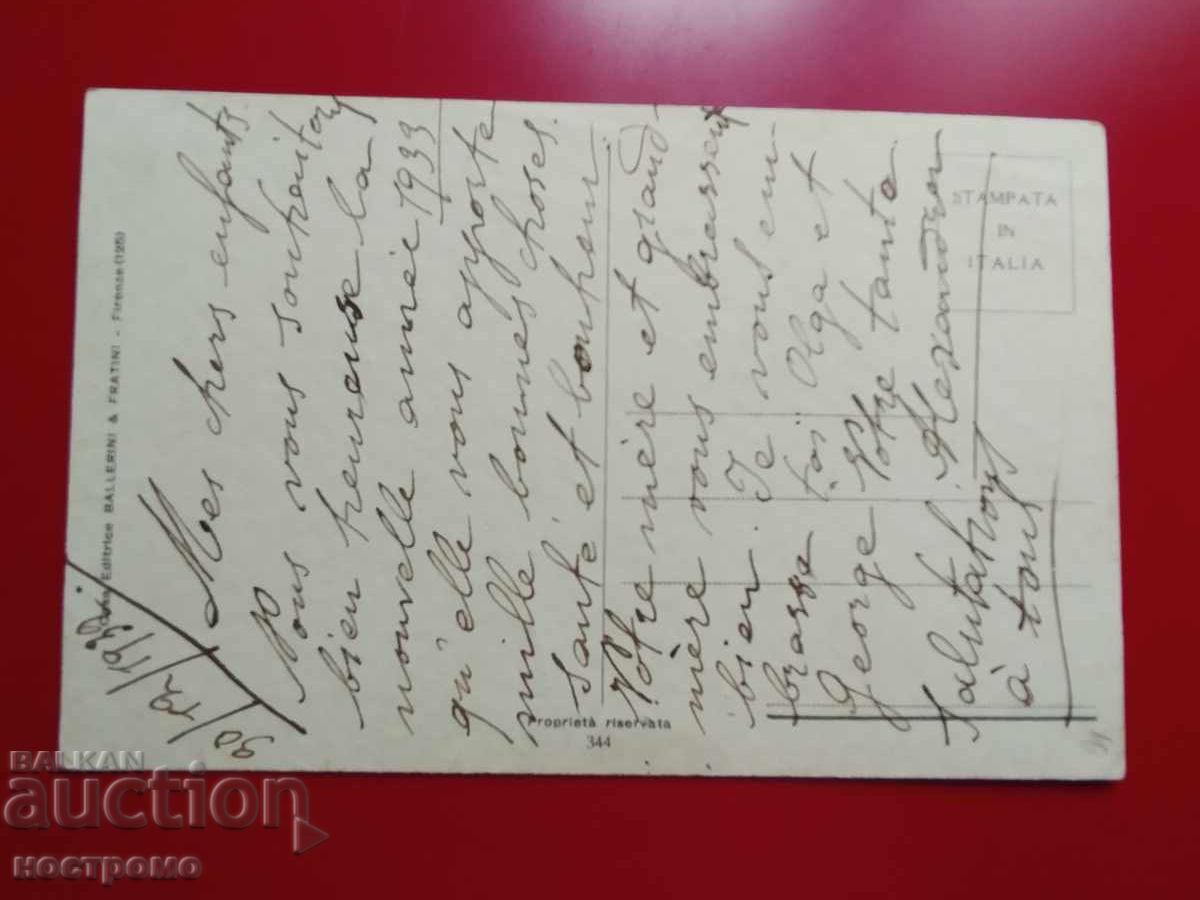 30/12/1932
Mes chers enfants
Nous vous souhaitons
bien heureuse la
nouvelle année 1933
qu'elle vous apporte
mille bonnes choses.
Santé et bonheur.
Votre mère et grand-
mère vous embrassent
bien. Je vous em
brasse toi Olga et
George Votre tante
Alexandra
Salutations
à tous
Editrice BALLERINI & FRATINI - Firenze (125)
Proprietà riservata
344
STAMPATA
IN
ITALIA
BALKAN
auction
ностромо